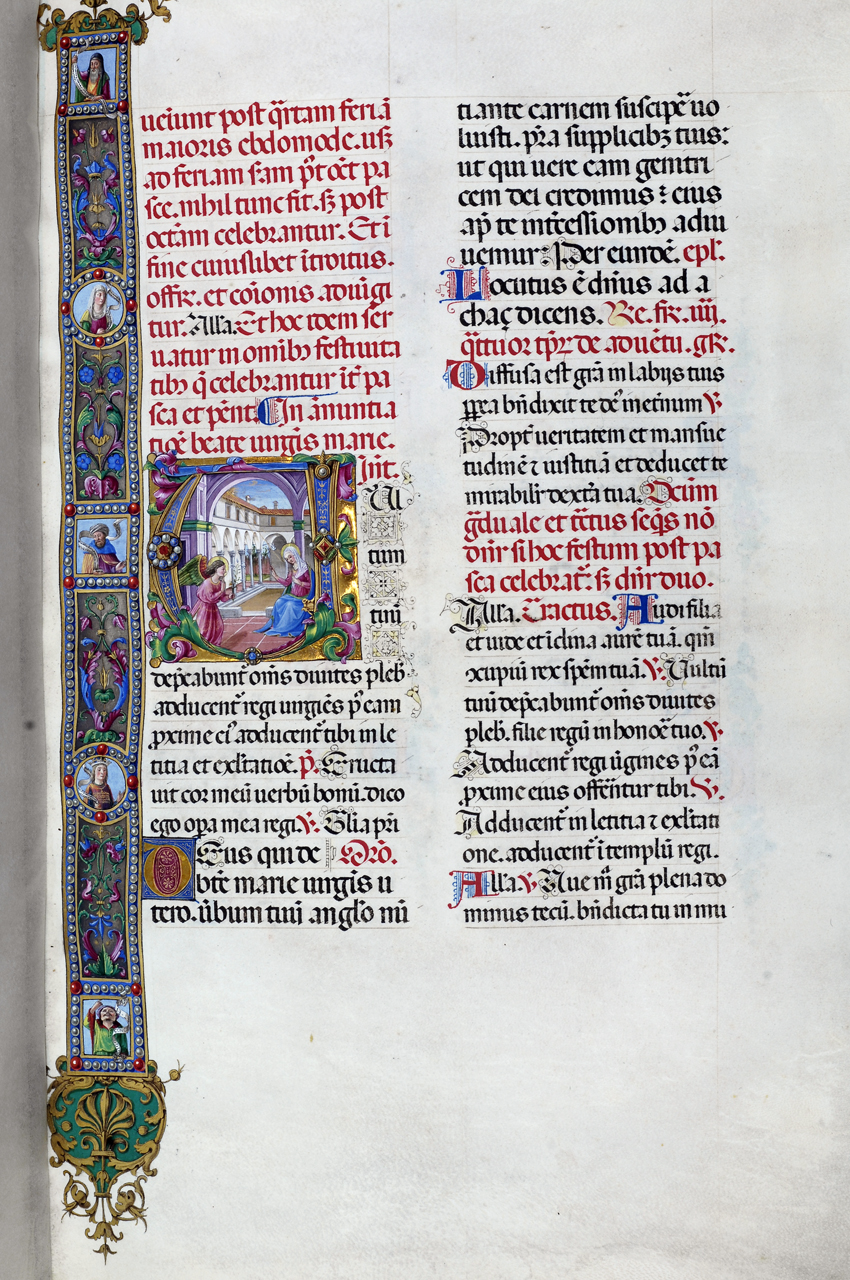 ueiunt post q̄rtam feriā
maioris ebdomode. usq̄
ad feriam s̄am p̄t oc̄t pa
sce. nihil tunc fit. s̄ post
octam celebrantur. Et ī
fine cuiuslibet ītroitus.
offr̄. et cōionis adiūgi
tur. Alla. Et hoc idem ser
uatur in omībꝫ festiuita
tibꝫ q̄ celebrantur īt̄ pa
sca et pent̄. In ānuntia
tiōe beate uirgīs marie.
Int̄.
Vul
tum
tuū
dep̄cabunt̄ om̄s diuites pleb̄.
adducent̄ regi uirgīes p̓ eam
ꝓxime ei⁹ adducent̄ tibi in le
titia et exl̄tatiōe. p̄. Eructa
uit cor meū uerbū bonū. dico
ego oꝑa mea regi. ℣. Gl̄ia pr̄i
Deus qui de Or̄o.
bt̄e marie uirgīs u
tero. ūbum tuū anḡlo nū
tiante carnem suscip̄e uo
luisti. pr̄a supplicibꝫ tuis:
ut qui uere eam genitri
cem dei credimus ⁊ eius
ap̄ te int̄cessionibꝫ adiu
uemur: Per eundē. ep̄l.
Locutus ē dn̄ius ad a
chaç dicens. Re. fr̄. iiij.
q̄ttuor tp̄r̄ de aduētu. gr̄.
Diffusa est gr̄a in labijs tuis
ꝓp̄ea bn̄dixit te de⁹ in et̄num ℣.
Propt̄ ueritatem et mansue
tudinē ⁊ iustitiā et deducet te
mirabilr̄ dext̄a tua. Dcūm
ḡduale et tr̄ctus seq̄s nō
dn̄r si hoc festum post pa
sca celebrat̄. s̄ dn̄r duo.
Alla. Tractus. Audi filia
et uide et īclina aurē tuā. qm̄
ↄcupiuī rex spēm tuā. ℣. Vultū
tuū dep̄cabunt̄ om̄s diuites
pleb̄. filie regū in honoē tuo. ℣.
Adducent̄ regi ūgines p̓ eā
ꝓxime eius offēntur tibi. ℣.
Adducent̄ in letitia ⁊ exl̄tati
one. adducent̄ ī templū regi.
Alla ℣. Aue m̄ grā plena do
minus tecū. bn̄dicta tu in mu